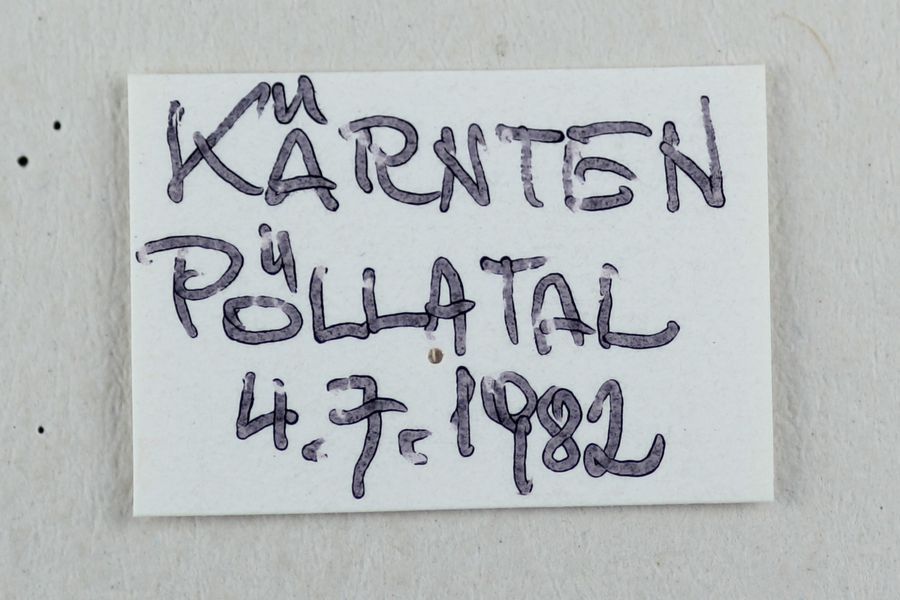 KÄRNTEN
PÖLLATAL
4.7.1982